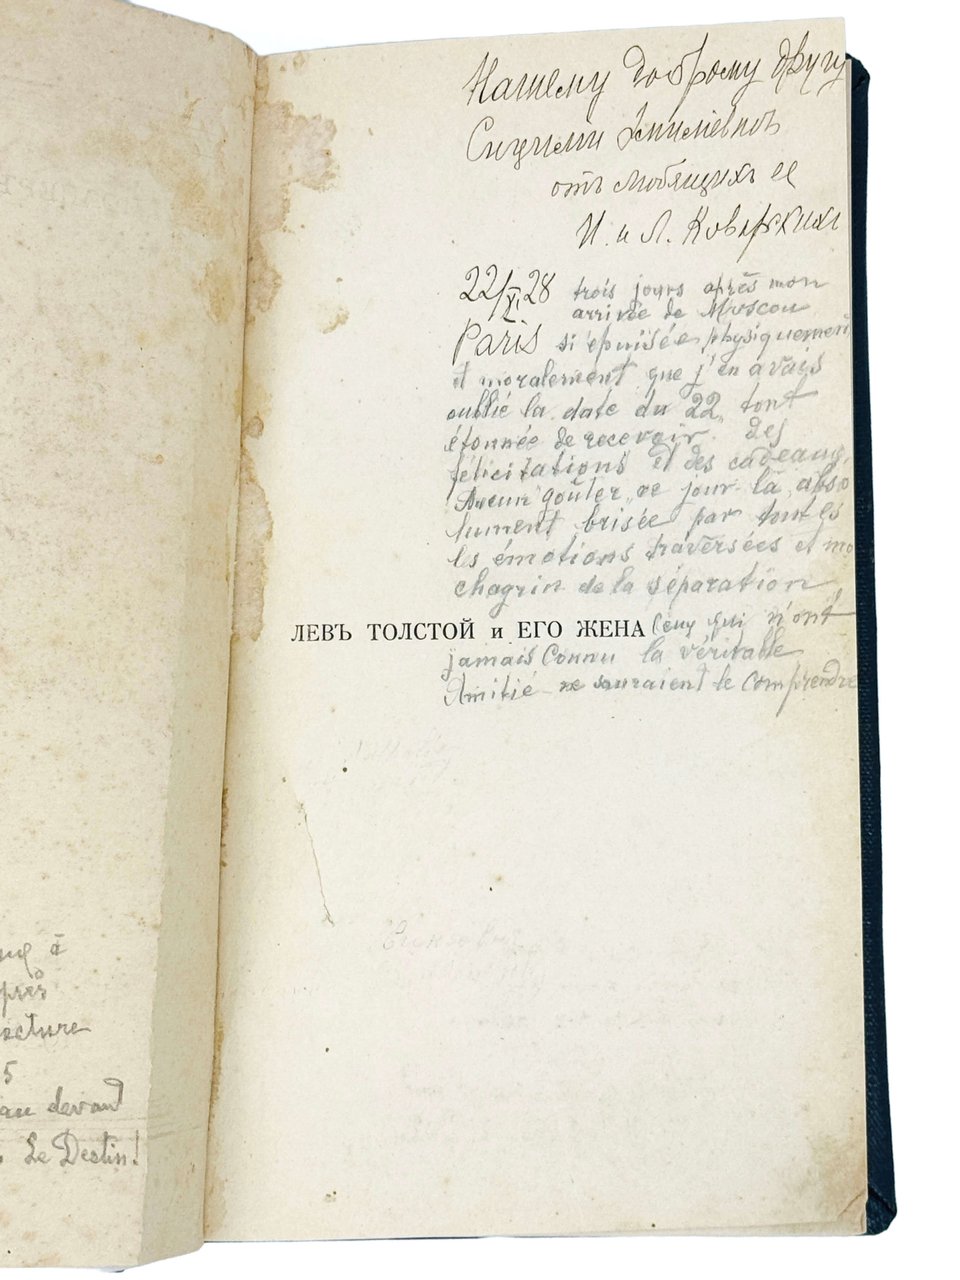 Нашему доброму другу
отъ любящихъ ее
И. и Л. Коварскихъ
22/XI 28 trois jours après mon
arrivée de Moscou
Paris si épuisée physiquement
et moralement que j'en avais
oublié la date du 22, tout
étonnée de recevoir des
félicitations et des cadeaux,
Aucun goûter ce jour-là, abso
lument brisée par toutes
les émotions traversées et mo
chagrin de la séparation
ЛЕВЪ ТОЛСТОЙ и ЕГО ЖЕНА Ceux qui n'ont
jamais connu la véritable
Amitié ne sauraient le comprendre
à
près
lecture
5
au devant
Le Destin!